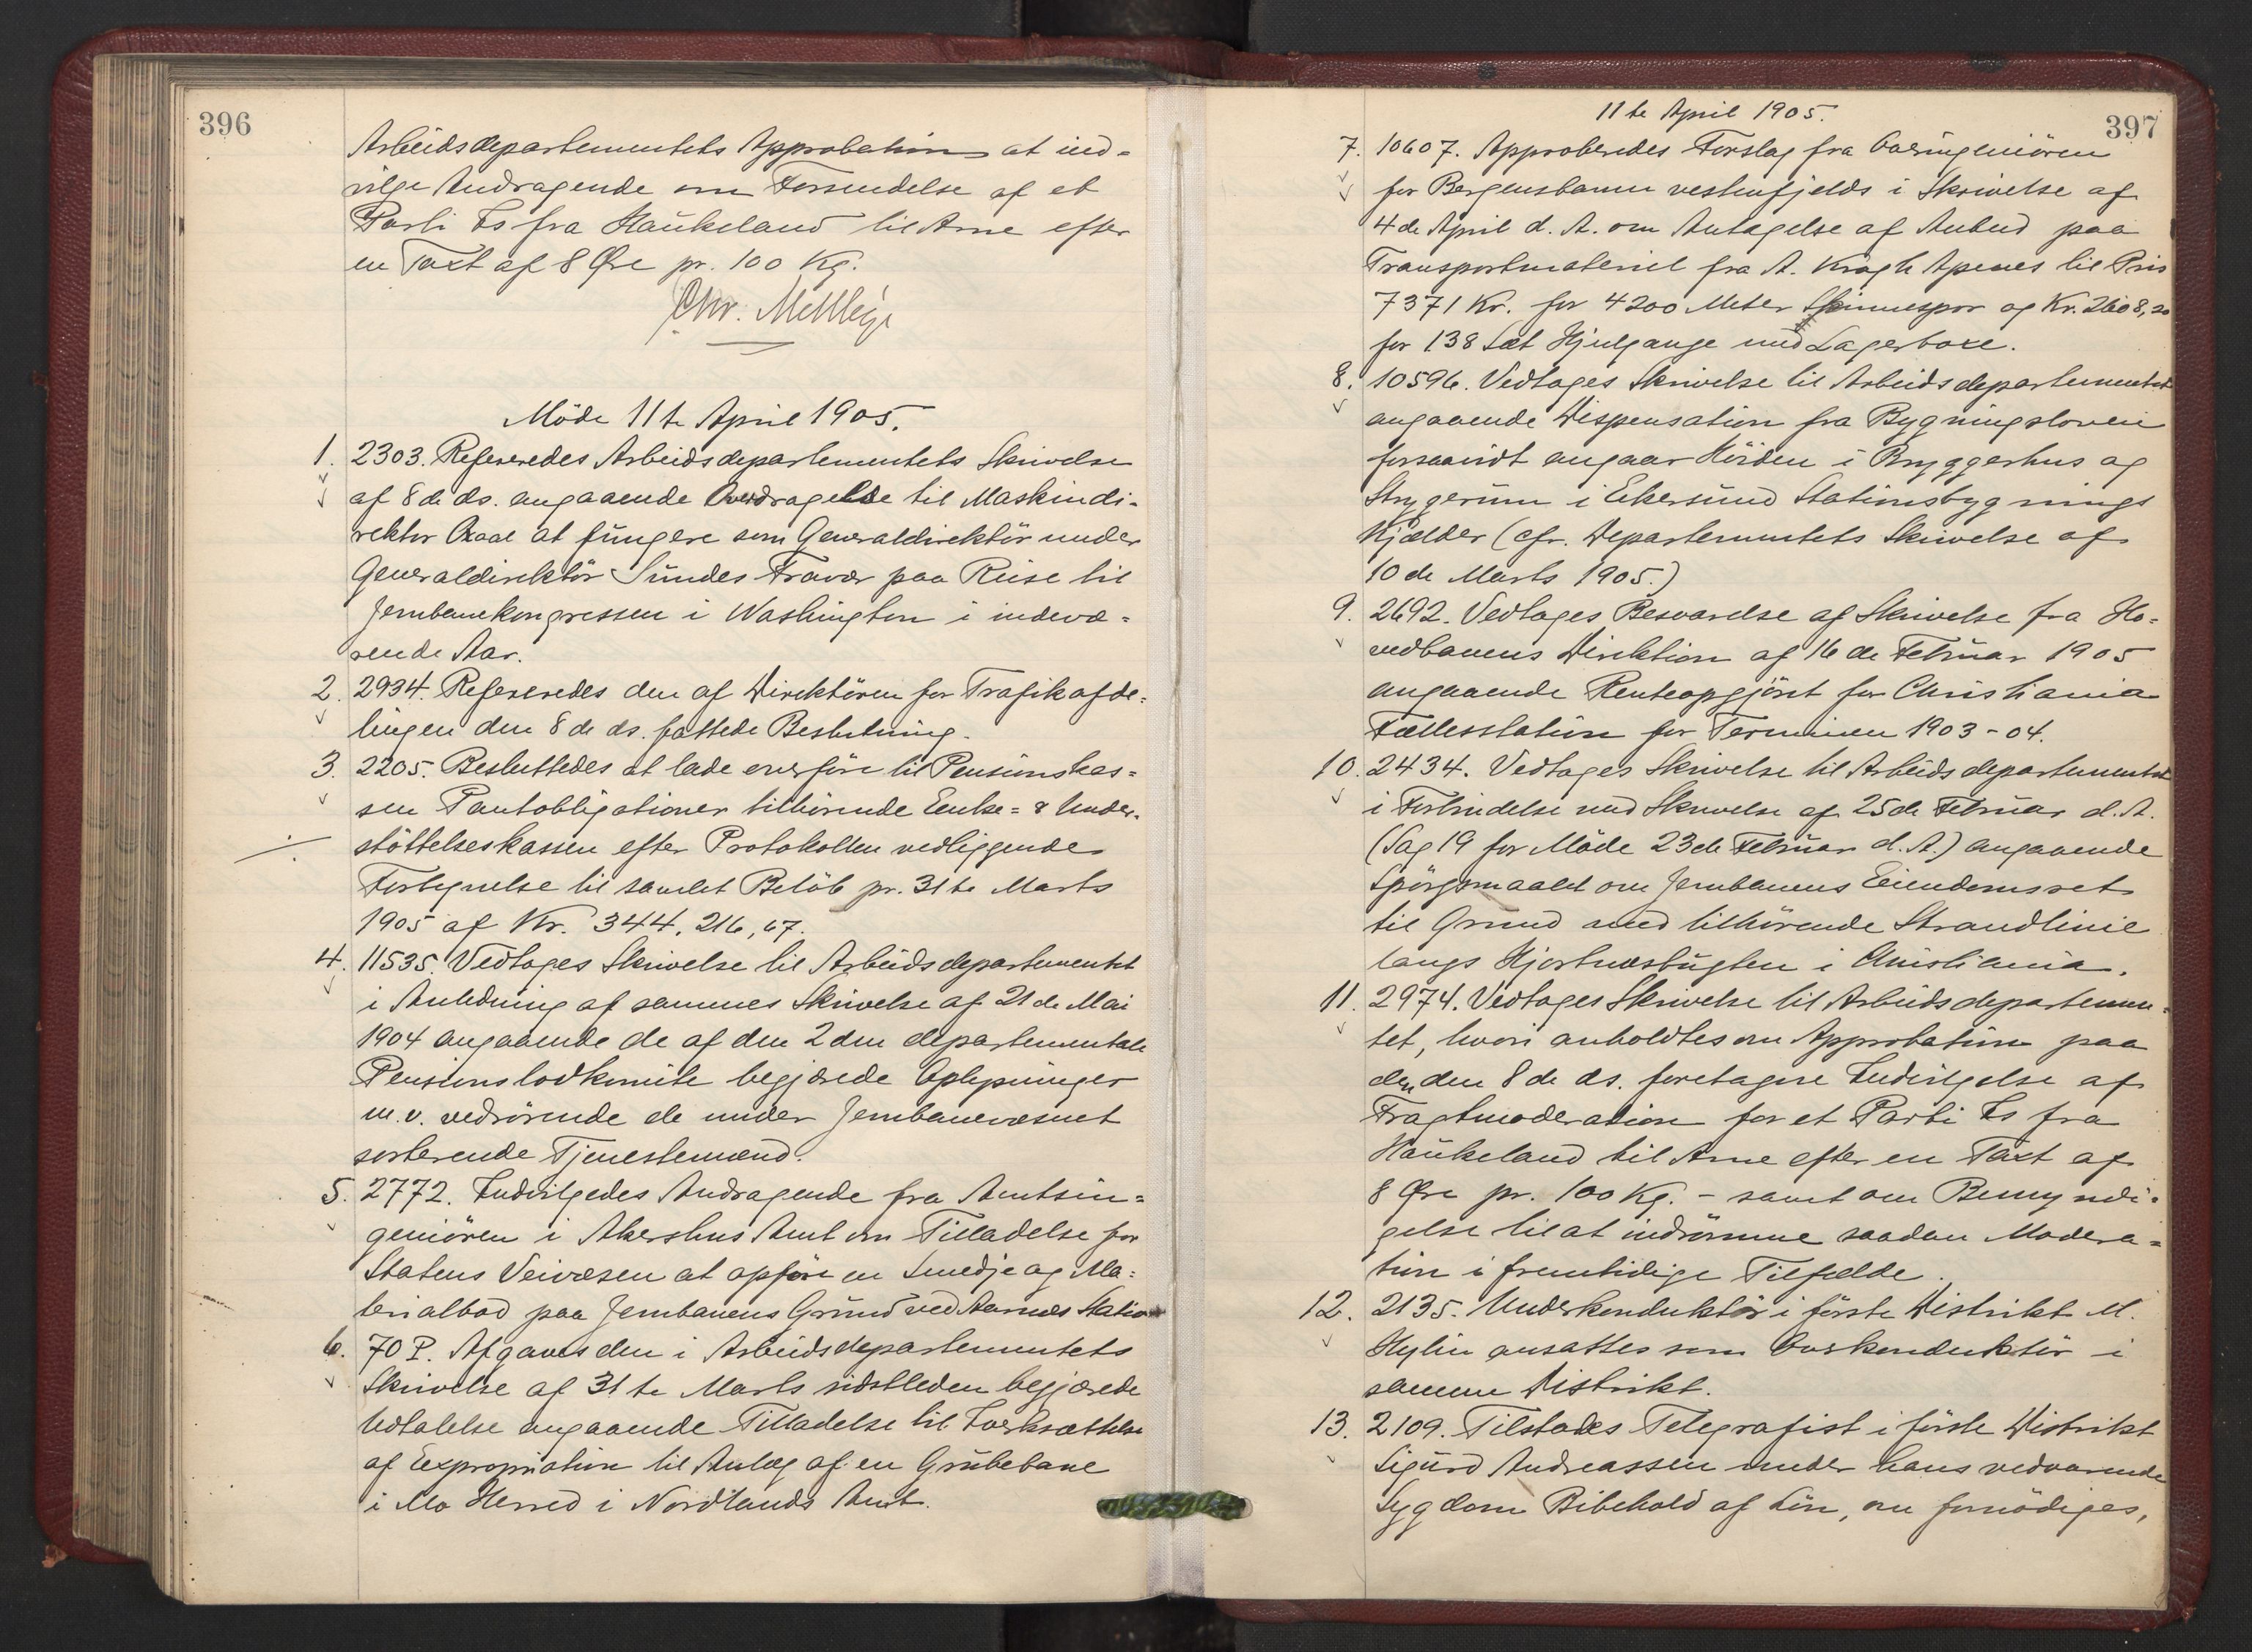 396
Arbeidsdepartementets Approbation at ind-
vilge Andragende om Forsendelse af et
Parti Is fra Haukeland til Arne efter
en Taxt af 8 Øre pr. 100 Kg.
Chr.
Möde 11te April 1905.
1. 2303. Refereredes Arbeidsdepartementets Skrivelse
af 8de ds. angaaende Overdragelse til Maskindi-
rektør at fungere som Generaldirektör under
Generaldirektör Sundes Fravær paa Reise til
Jernbanekongressen i Washington i indevæ-
rende Aar.
2. 2934. Refereredes den af Direktören for Trafikafde-
lingen den 8de ds. fattede Beslutning.
3. 2205. Besluttedes at lade overföre til Pensionskas-
sen Pantobligationer tilhörende Enke- & Under-
stöttelseskassen efter Protokollen vedliggende
Fortegnelse til samlet Belöb pr. 31te Marts
1905 af Kr. 344,216,67.
4. 11535. Vedtoges Skrivelse til Arbeidsdepartementet
i Anledning af sammes Skrivelse af 21de Mai
1904 angaaende de af den 2den departementale
Pensionslovkomite begjærede Oplysninger
m.v. vedrörende de under Jernbanevæsenet
sorterende Tjenestemænd.
5. 2772. Indvilgedes Andragende fra Amtsin-
geniören i Akershus Amt om Tilladelse for
Statens Veivæsen at opföre en Smedje og Ma-
terialbod paa Jernbanens Grund ved Aarnæs Station
6. 70 P. Afgaves den i Arbeidsdepartementets
Skrivelse af 31te Marts sidstleden begjærede
Udtalelse angaaende Tilladelse til Iværksættelse
af Expropriation til Anlæg af en Grubebane
i Mo Herred i Nordlands Amt.
11te April 1905.
397
7. 10607. Approberedes Forslag fra Overingeniören
for Bergensbanen vestenfjelds i Skrivelse af
4de April d. A. om Antagelse af Anbud paa
Transportmateriel fra A. Kragh Apenes til Pris
7371 Kr. for 4200 Meter Skinnespor og Kr. 2608,20
for 138 Sæt Hjulgange med Lagerboxe.
8. 10596. Vedtoges Skrivelse til Arbeidsdepartementet
angaaende Dispensation fra Bygningsloven
forsaavidt angaar Höiden i Bryggerhus og
Strygerum i Ekersund Stationsbygnings
Kjælder (cfr. Departementets Skrivelse af
10de Marts 1905.)
9. 2692. Vedtoges Besvarelse af Skrivelse fra Ho-
vedbanens Direktion af 16de Februar 1905
angaaende Renteopgjöret for Christiania
Fællesstation for Terminen 1903-04.
10. 2434. Vedtoges Skrivelse til Arbeidsdepartementet
i Forbindelse med Skrivelse af 25de Februar d. A.
(Sag 19 for Möde 23de Februar d. A.) angaaende
Spörgsmaalet om Jernbanens Eiendomsret
til Grund med tilhörende Strandlinie
langs Hjortnæsbugten i Christiania.
11. 2974. Vedtoges Skrivelse til Arbeidsdepartemen-
tet, hvori anholdtes om Approbation paa
den den 8de ds. foretagne Indvilgelse af
Fragtmoderation for et Parti Is fra
Haukeland til Arne efter en Taxt af
8 Øre pr. 100 Kg. - samt om Bemyndi-
gelse til at indrömme saadan Modera-
tion i fremtidige Tilfælde.
12. 2135. Underkonduktör i förste Distrikt M.
Hylin ansattes som Overkonduktör i
samme Distrikt.
13. 2109. Tilstodes Telegrafist i förste Distrikt
Sigurd Andreassen under hans vedvarende
Sygdom Bibehold af Lön, om fornödiges,